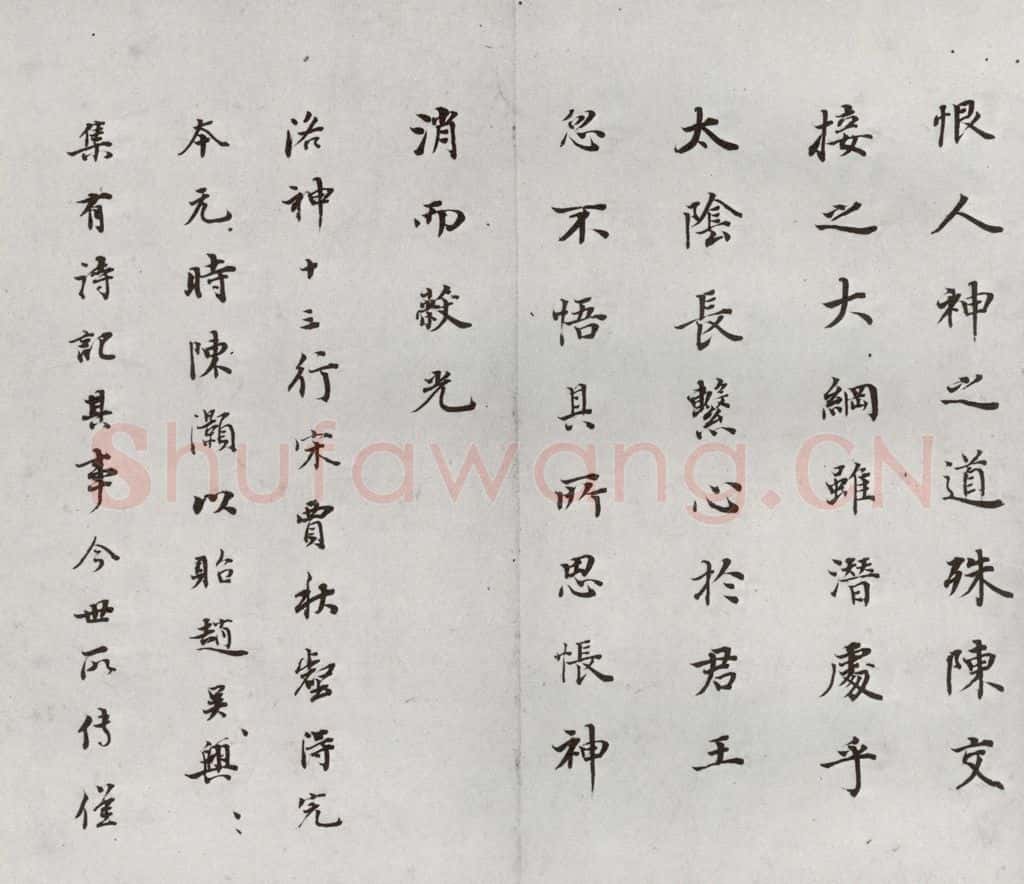 恨人神之道殊陳交
接之大綱雖潛處乎
太陰長繫心於君王
忽不悟其所思悵神
消而蔽光
洛神十三行宋賈秋壑得完
本元時陳灝以貽趙吳〻興〻
集有詩記其事今世所傳僅
Shufawang.CN